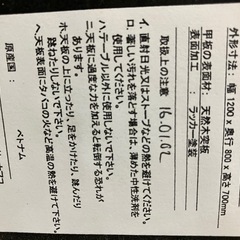 外形寸法： 幅 1200 x 奥行 800 x 高さ 700mm
甲板の表面材： 天然木突板
表面加工 ： ラッカー塗装
取扱上の注意 16.01.02
イ.直射日光又はストーブなどの熱を避けてください。
ロ.著しい汚れを落とす場合は、薄めた中性洗剤を
使用してください。
ハ.テーブル以外に使用しないで下さい。
ニ.天板に過度な力を加えると転倒する恐れが
あります。
ホ.天板の上に立ったり、足をかけたり、踏んだり
跳ねたりしないで下さい。
ヘ.天板表面にタバコの火など高温の熱を避けて下さい。
原産国： ベトナム